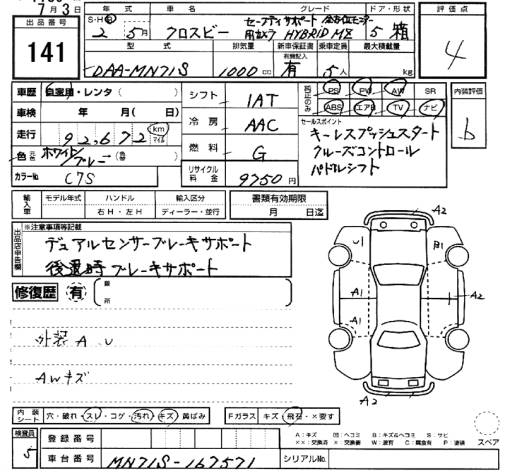 7月3日
出品番号
141
年式 車名 グレード ドア・形状 評価点
S・H・R 2年 5月 クロスビー セーフティサポート 全方位モニター用カメラ HYBRID MZ 5 箱
4
型式 排気量 新車保証書 乗車定員 最大積載量
DAA-MN71S 1000cc 有 5人 kg
車歴 自家用・レンタ( )
車検 年 月( 日)
走行 92,672 km マイル
色 元色 ホワイト/ブルー (色替)
カラーNo C7S
シフト IAT
冷房 AAC
燃料 G
リサイクル料金 9750円
純正のみ PS PW AW SR
ABS エアB TV ナビ
内装評価
b
セールスポイント
キーレスプッシュスタート
クルーズコントロール
パドルシフト
輸入車 モデル年式 ハンドル 輸入区分 書類有効期限
右H・左H ディーラー・並行 月 日迄
出品店申告欄
※注意事項等記載
デュアルセンサーブレーキサポート
後退時ブレーキサポート
修復歴 有 箇所
外装A U
AWキズ
A2
U1 B1
A1 A2
A1
A2
内装シート 穴・破れ スレ・コゲ・汚れ・キズ・黄ばみ Fガラス キズ・飛石・×要す
検査員
5
登録番号
車台番号 MN71S-167571 シリアルNo.
A:キズ U:ヘコミ B:キズ&ヘコミ S:サビ
××:交換済 ×:交換 W:波打 C:腐食 P:塗装
スペア